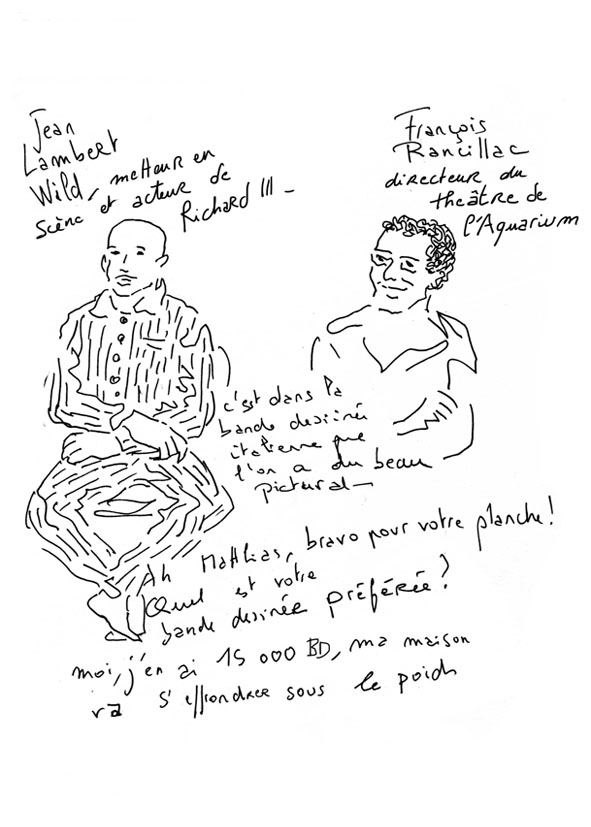 Jean
Lambert
Wild, metteur en
scène et acteur de
Richard III -
François
Rancillac
directeur du
theâtre de
l'Aquarium
c'est dans la
bande dessinée
italienne que
l'on a du beau
pictural -
Ah Matthias, bravo pour votre planche!
Quel est votre
bande dessinée préférée?
moi, j'en ai 15 000 BD, ma maison
va s'effondrer sous le poids